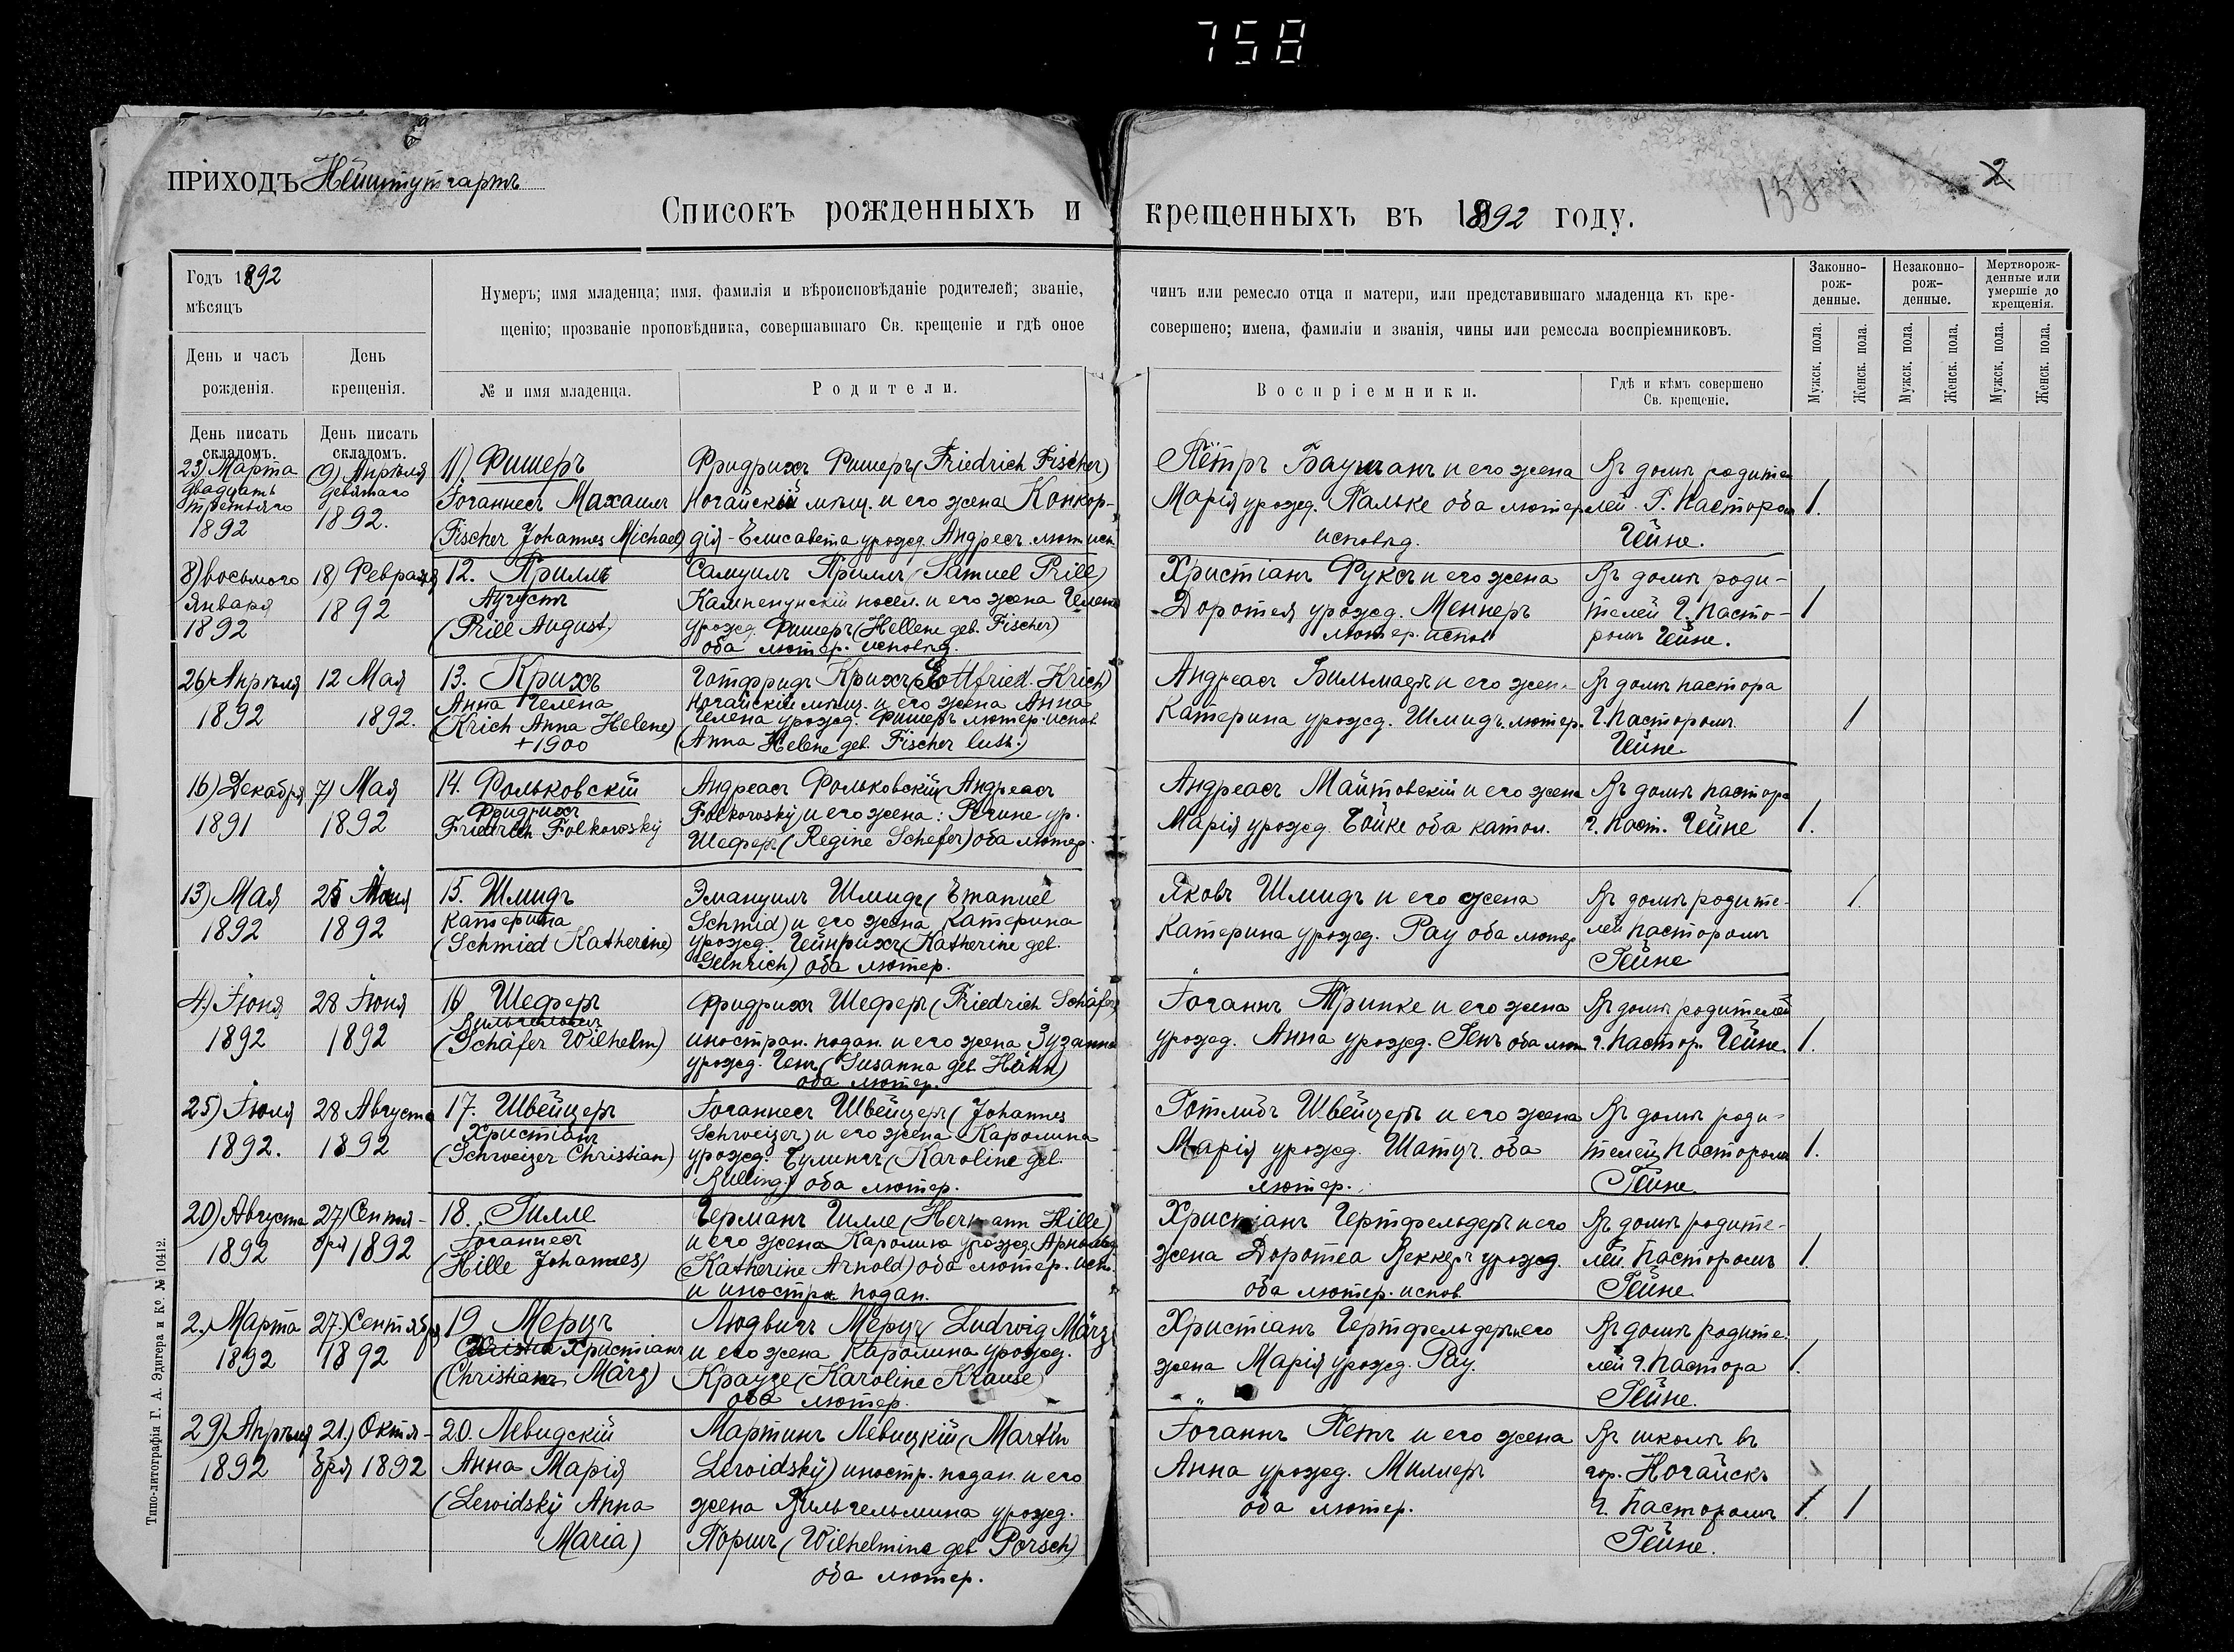 758
ПРИХОДЪ Нейштутгартъ
2
Списокъ рожденныхъ и крещенныхъ въ 1892 году.
Годъ 1892
мѣсяцъ
День и часъ
рожденія.
День
крещенія.
Нумеръ; имя младенца; имя, фамилія и вѣроисповѣданіе родителей; званіе,
щенію; прозваніе проповѣдника, совершавшаго Св. крещеніе и гдѣ оное
№ и имя младенца.
Родители.
чинъ или ремесло отца и матери, или представившаго младенца къ кре-
совершено; имена, фамиліи и званія, чины или ремесла воспріемниковъ.
Воспріемники.
Гдѣ и кѣмъ совершено
Св. крещеніе.
Законно-
рож-
денные.
Незаконно-
рож-
денные.
Мертворож-
денные или
умершіе до
крещенія.
Мужск. пола.
Женск. пола.
Мужск. пола.
Женск. пола.
Мужск. пола.
Женск. пола.
День писать
складомъ.
День писать
складомъ.
23) Марта
двадцать
третьяго
1892
(9) Апрѣля
девятаго
1892.
11) Фишеръ
Іоганнесъ Махаилъ
(Fischer Johannes Michael)
Фридрихъ Фишеръ (Friedrich Fischer)
Ногайскій мѣщ. и его жена Конкор-
дія-Елисавета урожд. Андресъ лют исп
Пётръ Бауманъ и его жена
Марія урожд. Пальке оба лютер
исповѣд.
Въ домѣ родите
лей Г. Пасторомъ
Гейне.
1.
8) восьмого
января
1892
18) Февраля
1892
12. Приллъ
Августъ
(Prill August)
Самуилъ Приллъ (Samuel Prill)
посел. и его жена Гелена
урожд. Фишеръ (Hellene geb. Fischer)
оба лютер. исповѣд.
Христіанъ Фуксъ и его жена
Доротея урожд. Меннеръ
лютер. испов.
Въ домѣ роди-
телей Г. Пасто-
ромъ Гейне.
1
26) Апрѣля
1892
12 Мая
1892.
13. Крихъ
Анна Гелена
(Krich Anna Helene)
+ 1900
Готфридъ Крихъ (Gottfried Krich)
Ногайскій мѣщ. и его жена Анна
Гелена урожд. Фишеръ лютер. испов
(Anna Helene geb. Fischer luth.)
Андреасъ и его жен
Катерина урожд. Шмидъ лютер.
Въ домѣ пастора
Г. Пасторомъ
Гейне.
1
16) Декабря
1891
7) Мая
1892
14. Фольковскій
Фридрихъ
Friedrich Folkowsky
Андреасъ Фольковскій Андреасъ
Folkowsky) и его жена: Регине ур.
Шеферъ (Regine Schefer) оба лютер.
Андреасъ Майтовскій и его жена
Марія урожд. Бойке оба катол.
Въ домѣ пастора
Г. Паст. Гейне
1.
13) Мая
1892
25
1892
15. Шмидъ
Катерина
(Schmied Katherine)
Эмануилъ Шмидъ (Emanuel
Schmid) и его жена Катерина
урожд. Гейнрихъ (Katherine geb.
Heinrich) оба лютер.
Яковъ Шмидъ и его жена
Катерина урожд. Рау оба лютер
Въ домѣ родите-
лей Пасторомъ
Гейне
1.
4) Іюня
1892
28 Іюня
1892
16 Шеферъ
Вильгельмъ
(Schäfer Wilhelm)
Фридрихъ Шеферъ (Friedrich Schäfer)
иностран. подан. и его жена Зузанна
урожд. Генъ (Susanna geb. Hähn)
оба лютер.
Іоганнъ Тринке и его жена
урожд. Анна урожд. Генъ оба лют
Въ домѣ родителей
Г. Пастор. Гейне.
1.
25) Іюля
1892.
28 Августа
1892
17. Швейцеръ
Христіанъ
(Schweizer Christian)
Іоганнесъ Швейцеръ (Johannes
Schweizer) и его жена Каролина
урожд. Булингъ (Karoline geb.
Bulling) оба лютер.
Готлибъ Швейцеръ и его жена
Марія урожд. Шатцъ. оба
лютер.
Въ домѣ роди-
телей Пасторомъ
Гейне
1.
20) Августа
1892
27) Сентя-
бря 1892
18. Гилле
Іоганнесъ
(Hille Johannes)
Германъ Гилле (Hermann Hille)
и его жена Каролина урожд. Арнольд
(Katherine Arnold) оба лютер. исп.
и иностра подан.
Христіанъ Гертфельдеръ и его
жена Доротеа Веккеръ урожд.
оба лютер. испов
Въ домѣ родите-
лей Пасторомъ
Гейне
1.
2.) Марта
1892
27.) Сентября
1892
19 Мерцъ
Христіанъ
(Christian März)
Людвигъ Мерцъ (Ludwig März)
и его жена Каролина урожд.
Краузе (Karoline Krause)
оба лютер.
Христіанъ Гертфельдеръ и его
жена Марія урожд. Рау.
Въ домѣ родите
лей Г. Пастора
Гейне.
1.
29) Апрѣля
1892
21.) Октя-
бря 1892
20. Левидскій
Анна Марія
(Lewidsky Anna
Maria)
Мартинъ Левицкій (Martin
Lewidsky) иностр. подан. и его
жена Вильгельмина урожд.
Поршъ (Wilhelmine geb Porsch)
оба лютер.
Іоганнъ Петъ и его жена
Анна урожд. Миллеръ
оба лютер.
Въ школѣ въ
гор. Ногайскъ
Г. Пасторомъ
Гейне.
1
1
Типо-литографія Г. А. Эдигера и Ко. № 10412.